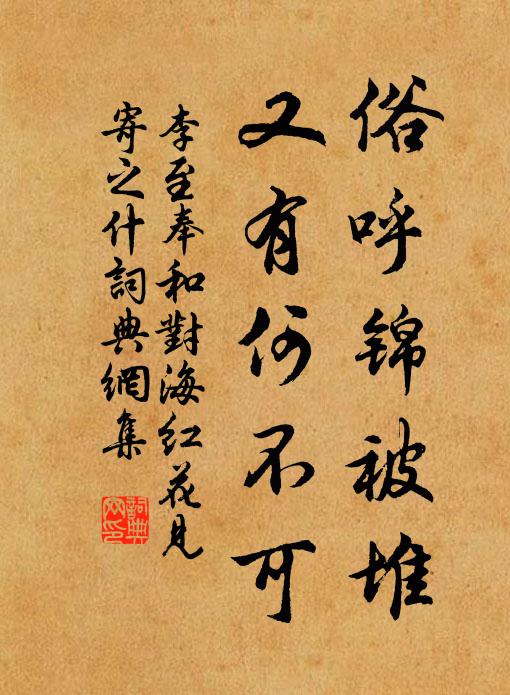 俗呼锦被堆
又有何不可
李至奉和對海红花見
寄之什詞典網集
詞典
网印